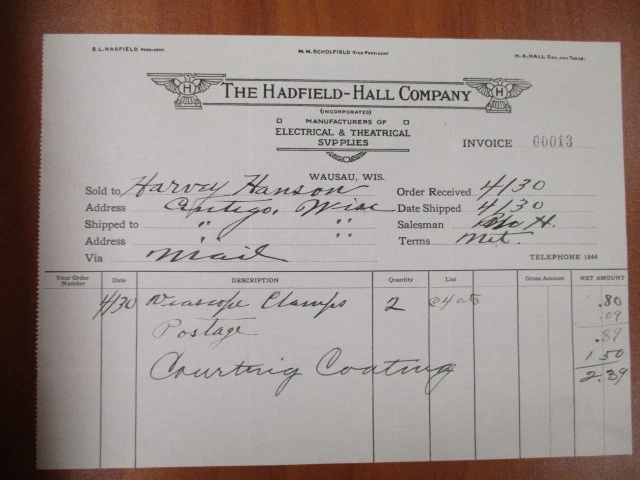 B. L. HADFIELD PRESIDENT
M. M. SCHOLFIELD VICE PRESIDENT
H. A. HALL SEC. AND TREAS.
H THE HADFIELD-HALL COMPANY H
(INCORPORATED)
MANUFACTURERS OF
ELECTRICAL & THEATRICAL
SVPPLIES
INVOICE 00013
WAUSAU, WIS.
Sold to Harvey Hanson Order Received 4/30
Address Antigo, Wisc Date Shipped 4/30
Shipped to " " Salesman H.
Address " " Terms Net.
Via Mail TELEPHONE 1944
Your Order Number Date DESCRIPTION Quantity List Gross Amount NET AMOUNT
4/30 Clamps 2 .80
Postage .09
.89
Coating 1 50
2.39